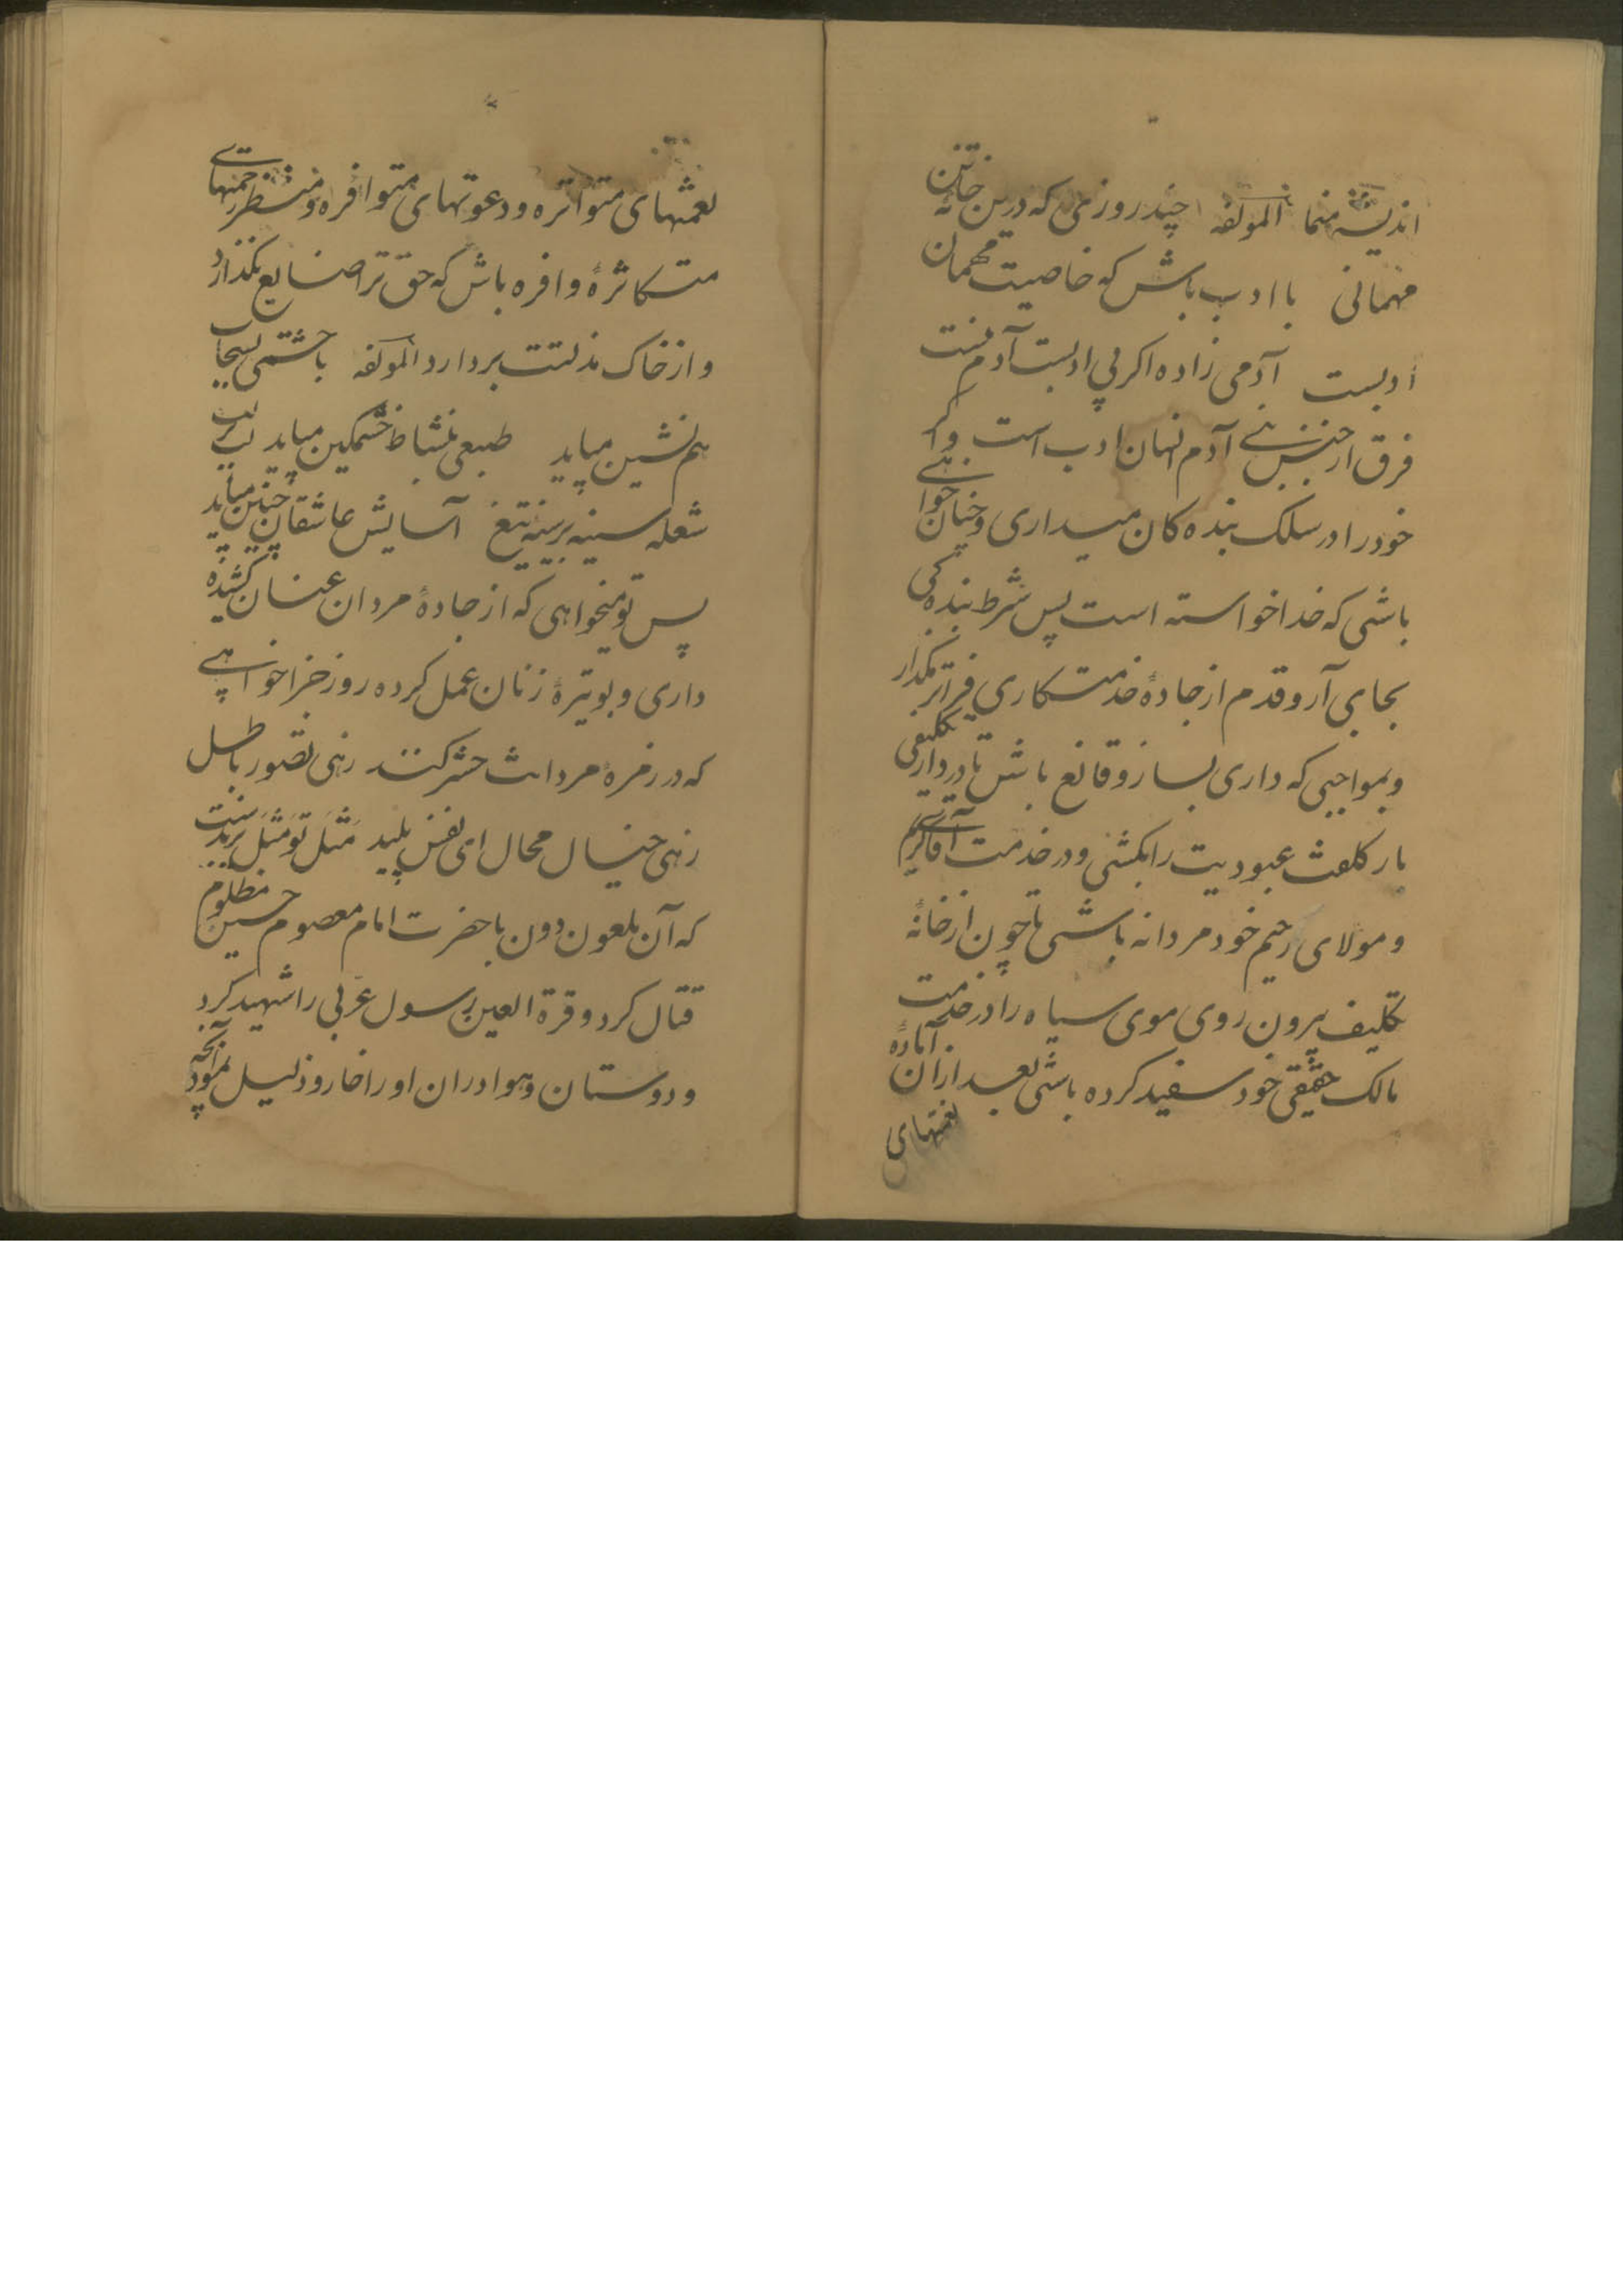 اندیشه منما لمولفه چند روزی که درین خانه تن
مهمانی با ادب باش که خاصیت مهمان
ادبست آدمی زاده اگر بی ادبست آدم نیست
فرق از جنس بنی آدم انهان ادب است واگر
خود را در سلک بنده کان میداری و چنان خواهی
باشی که خدا خواسته است پس شرط بنده کی
بجای آر و قدم از جادهٔ خدمتکاری فراتر مگذار
وبمواجبی که داری بساز و قانع باش تا در دار تکلیفی
بار کلفت عبودیت را بکشی و در خدمت آقای کریم
و مولای رحیم خود مردانه باشی تا چون از خانهٔ
تکلیف بیرون روی موی سیاه را در خدمت
مالک حقیقی خود سفید کرده باشی بعد ازان آمادهٔ
نعمتهای
نعمتهای متواتره و دعوتهای متوافره و منتظر رحمتهای
متکاثرهٔ وافره باش که حق ترا ضایع نکذارد
و از خاک مذلتت بردارد لمولفه با چشمی
هم نشین میباید طبعی بنشاط خشمکین میباید لب بر لب
شعله سینه بر سینه تیغ آسایش عاشقان چنین میباید
پس تو میخواهی که از جادهٔ مردان عنان کشیده
داری و بوتیرهٔ زنان عمل کرده روز جزا خواهی
که در زمرهٔ مردانت حشر کنند زهی تصور باطل
زهی خیال محال ای نفس پلید مَثَل تو مَثَل یزیدست
که آن ملعون دون با حضرت امام معصوم حسین مظلوم
قتال کرد و قرة العین رسول عربی را شهید کرد
و دوستان و هوادران او را خار و ذلیل نمود آنچه